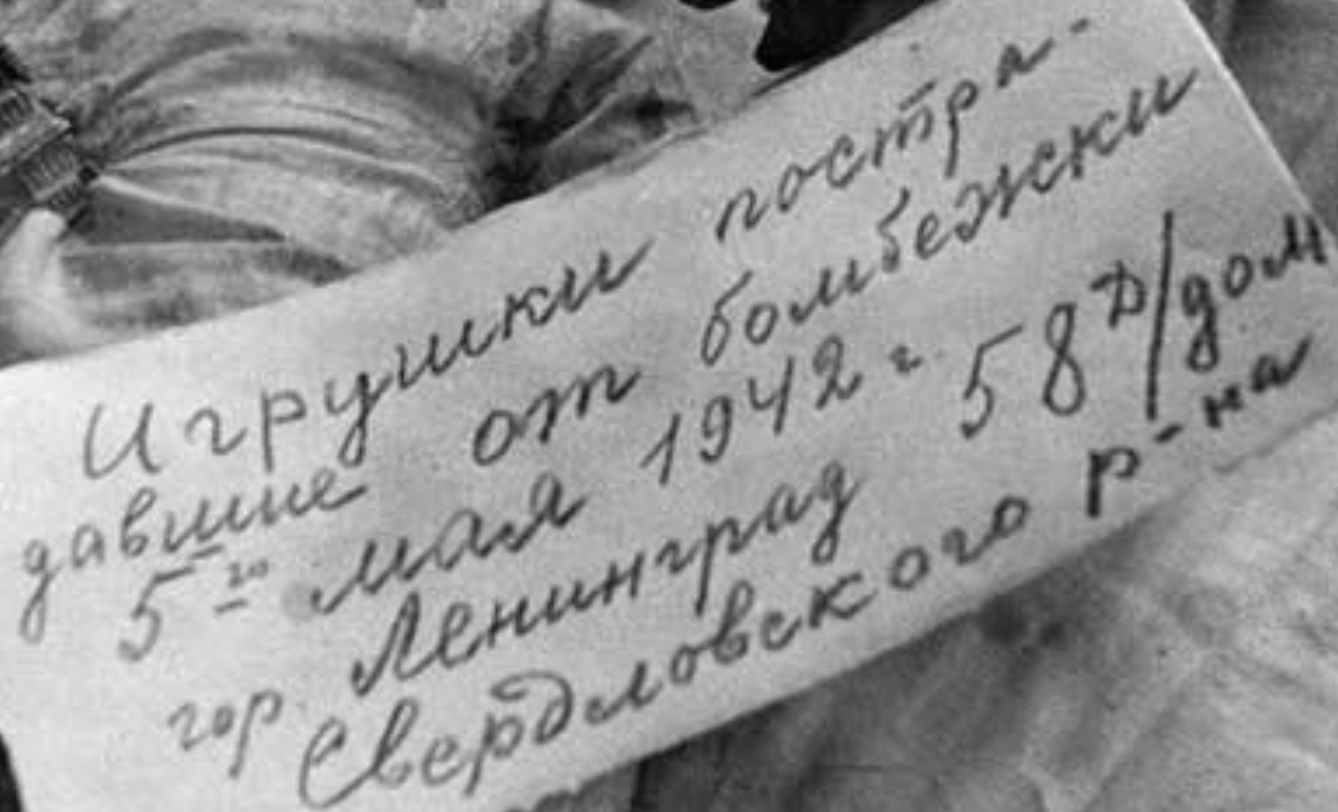 Игрушки постра-
давшие от бомбежки
5го мая 1942 г.
гор. Ленинград 58 д/дом
Свердловского р-на